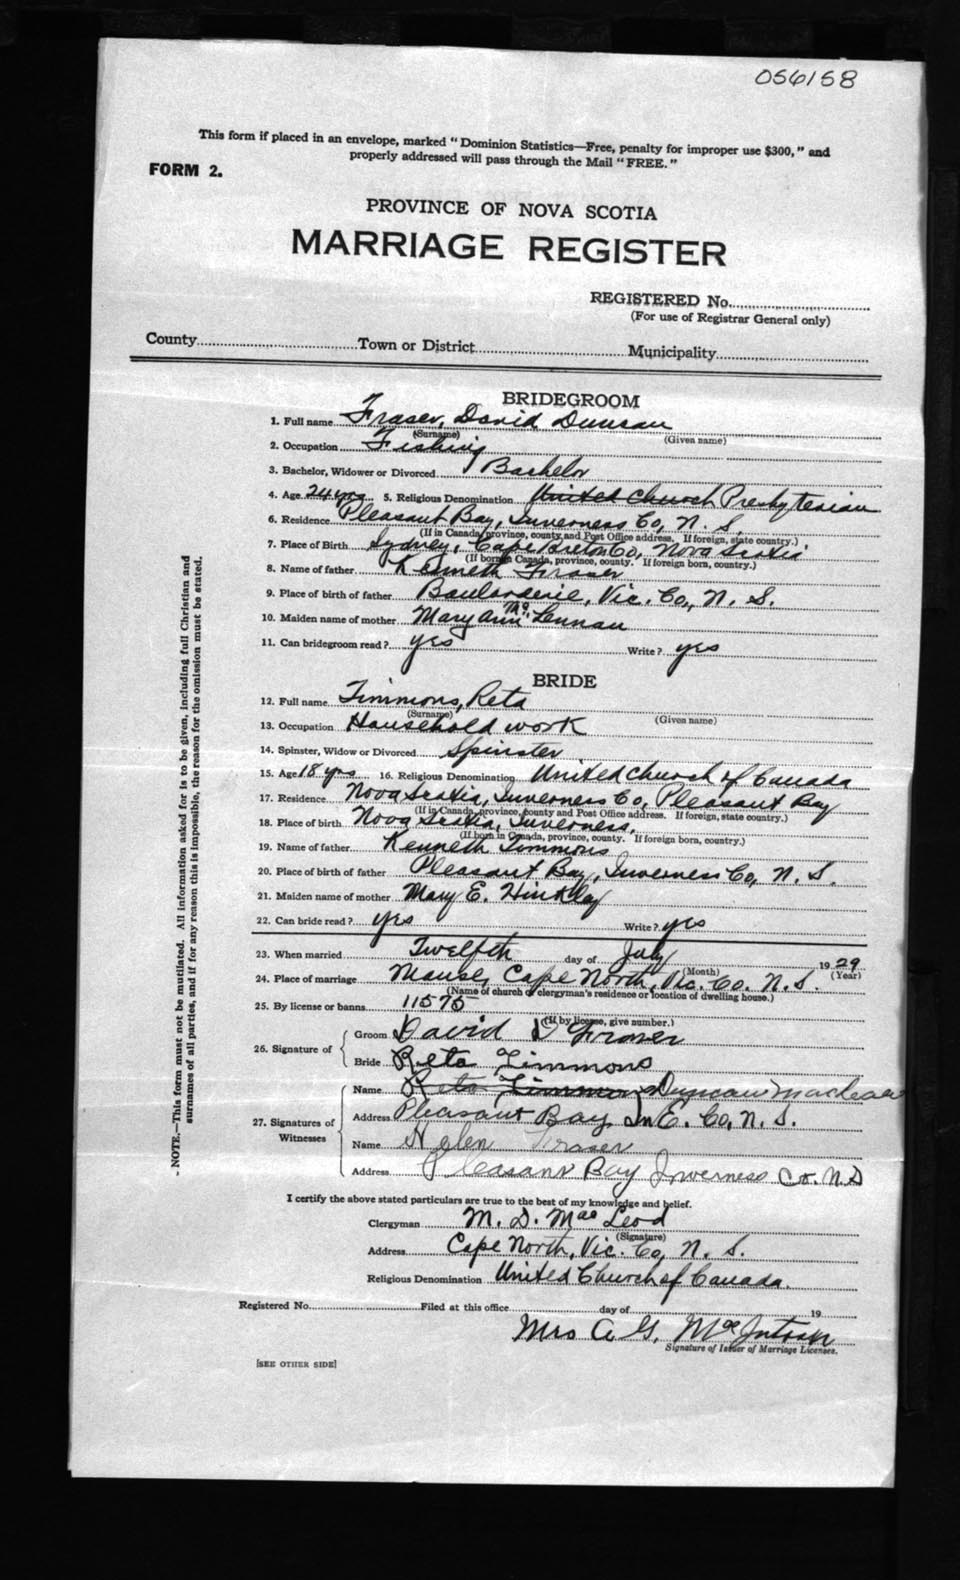 056158
This form if placed in an envelope, marked "Dominion Statistics—Free, penalty for improper use $300," and
properly addressed will pass through the Mail "FREE."
FORM 2.
PROVINCE OF NOVA SCOTIA
MARRIAGE REGISTER
REGISTERED No.
(For use of Registrar General only)
County Town or District Municipality
BRIDEGROOM
1. Full name Fraser, David Duncan
(Surname) (Given name)
2. Occupation Fishing
3. Bachelor, Widower or Divorced Bachelor
4. Age 24 yrs 5. Religious Denomination United Church Presbyterian
6. Residence Pleasant Bay, Inverness Co, N. S.
(If in Canada, province, county and Post Office address. If foreign, state country.)
7. Place of Birth Sydney, Cape Breton Co, Nova Scotia
(If born in Canada, province, county. If foreign born, country.)
8. Name of father Kenneth Fraser
9. Place of birth of father Boularderie, Vic. Co, N. S.
10. Maiden name of mother Mary Ann McLennan
11. Can bridegroom read? yes Write? yes
BRIDE
12. Full name Timmons, Reta
(Surname) (Given name)
13. Occupation Household work
14. Spinster, Widow or Divorced Spinster
15. Age 18 yrs 16. Religious Denomination United Church of Canada
17. Residence Nova Scotia, Inverness Co, Pleasant Bay
(If in Canada, province, county and Post Office address. If foreign, state country.)
18. Place of birth Nova Scotia, Inverness,
(If born in Canada, province, county. If foreign born, country.)
19. Name of father Kenneth Timmons
20. Place of birth of father Pleasant Bay, Inverness Co, N. S.
21. Maiden name of mother Mary E. Hinkley
22. Can bride read? yes Write? yes
23. When married Twelfth day of July 1929
(Month) (Year)
24. Place of marriage Manse, Cape North, Vic. Co. N. S.
(Name of church or clergyman's residence or location of dwelling house.)
25. By license or banns 11575
(If by license, give number.)
26. Signature of Groom David D Fraser
Bride Reta Timmons
27. Signatures of Witnesses
Name Reta Timmons Duncan MacLean
Address Pleasant Bay InE. Co, N. S.
Name Helen Fraser
Address Pleasant Bay Inverness Co. N.S
I certify the above stated particulars are true to the best of my knowledge and belief.
Clergyman M. D. MacLeod
(Signature)
Address Cape North, Vic. Co, N. S.
Religious Denomination United Church of Canada.
Registered No. Filed at this office day of 19
Mrs A. G. McIntosh
Signature of Issuer of Marriage Licenses.
[SEE OTHER SIDE]
- NOTE.—This form must not be mutilated. All information asked for is to be given, including full Christian and
surnames of all parties, and if for any reason this is impossible, the reason for the omission must be stated.